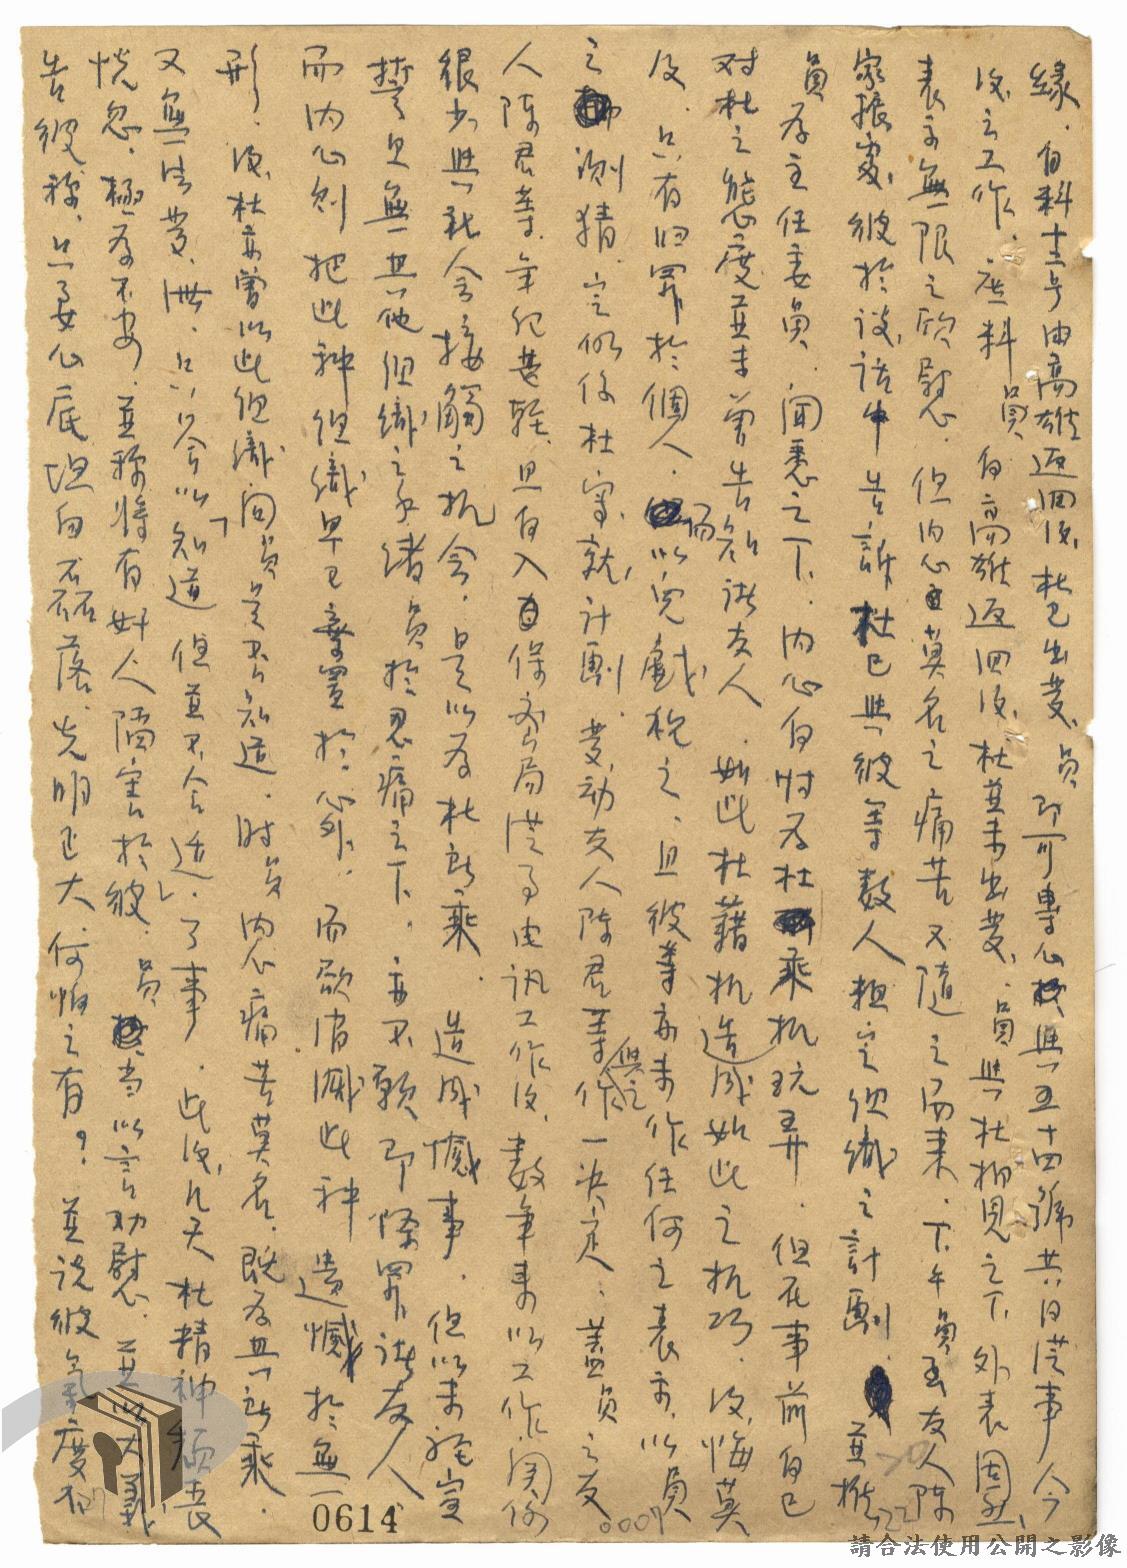 緣．自料士兮由高雄返回後，杜已出發，員即可專心與五十四號共同從事今
後之工作．庶料員自高雄返回後，杜並未出發，員與杜相見之下，外表固然
表示無限之欣慰，但內心莫名之痛苦又隨之而來．下午員至友人陳
家振處，彼於談話中告訴杜已與彼等數人組定組織之計劃 並推
員為主任委員．聞悉之下，內心自忖為杜乘机玩弄．但在事前自己
对杜之態度並未曾告知諸友人．如此杜藉机造成如此之机巧．後悔莫
及．只有归罪於個人．而以兒戲視之，且彼等亦未作任何之表示，以員
之測猜，定仍係杜守就計劃．發動友人陳君等作與之一決定．蓋員之友
人陳君等，年紀甚輕，且自入保密局從事由訊工作後，數年來以工作関係
很少與社會接觸之机會．是以為杜所乘．造成憾事．但以未經宣
誓且無其他組織之手續，員於忍痛之下．亦不願即條罪諸友人
而內心則把此种組織早已棄置於心外．而欲消滅此种遺憾於無
形．後杜亦曾以此組織向員是否知道．時員內心痛苦莫名．既為其所乘．
又無法發洩．只只含以「知道但並不合适」了事．此後，几天杜精神頹喪
恍忽，極為不安，並称將有奸人陷害於彼．員當以言劝慰．並以大義
告彼称，只要心底坦白石磊落，光明正大，何怕之有？並說彼氣度
0614
請合法使用公開之影像